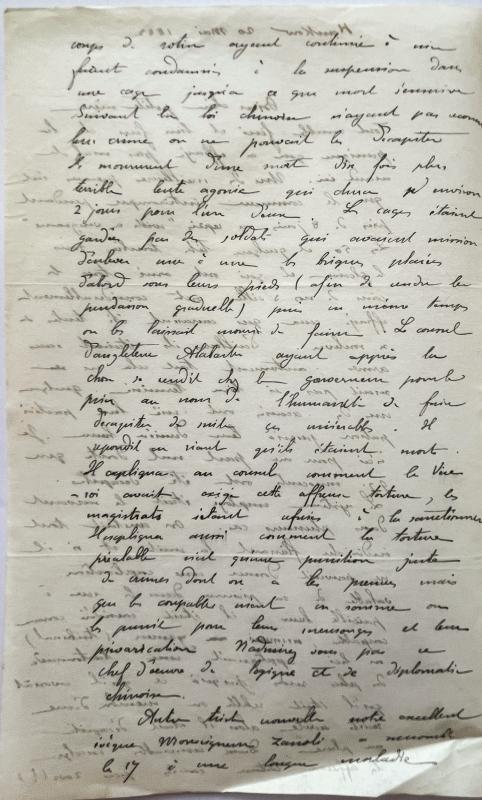 coups de rotin ayant continué à nier
furent condamnés à la suspension dans
une cage jusqu'à ce que mort s'ensuive
Suivant la loi chinoise n'ayant pas reconnu
leur crime on ne pouvait les décapiter
Ils moururent d'une mort dix fois plus
terrible lente agonie qui dura environ
2 jours pour l'un d'eux. Les cages étaient
gardées par des soldats qui avaient mission
d'enlever une à une les briques placées
d'abord sous leurs pieds (afin de rendre la
pendaison graduelle) puis en même temps
on les laissait mourir de faim. Le consul
d'angleterre ayant appris la
chose se rendit chez le gouverneur pour le
prier au nom de l'humanité de faire
décapiter de suite ces misérables. Il
répondit en riant qu'ils étaient mort.
Il expliqua au consul comment le Vice
-roi avait exigé cette affreuse torture, les
magistrats s'étant refusés à la sanctionner
Il expliqua aussi comment la torture
préalable n'est qu'une punition juste
de crimes dont on a les preuves mais
que les coupables nient en somme on
les punit pour leurs mensonges et leur
prévarication N'admirez vous pas ce
chef d'oeuvre de logique et de diplomatie
chinoise.
Autre triste nouvelle notre excellent
évêque Monseigneur Zanoli a succombé
le 17 à une longue maladie